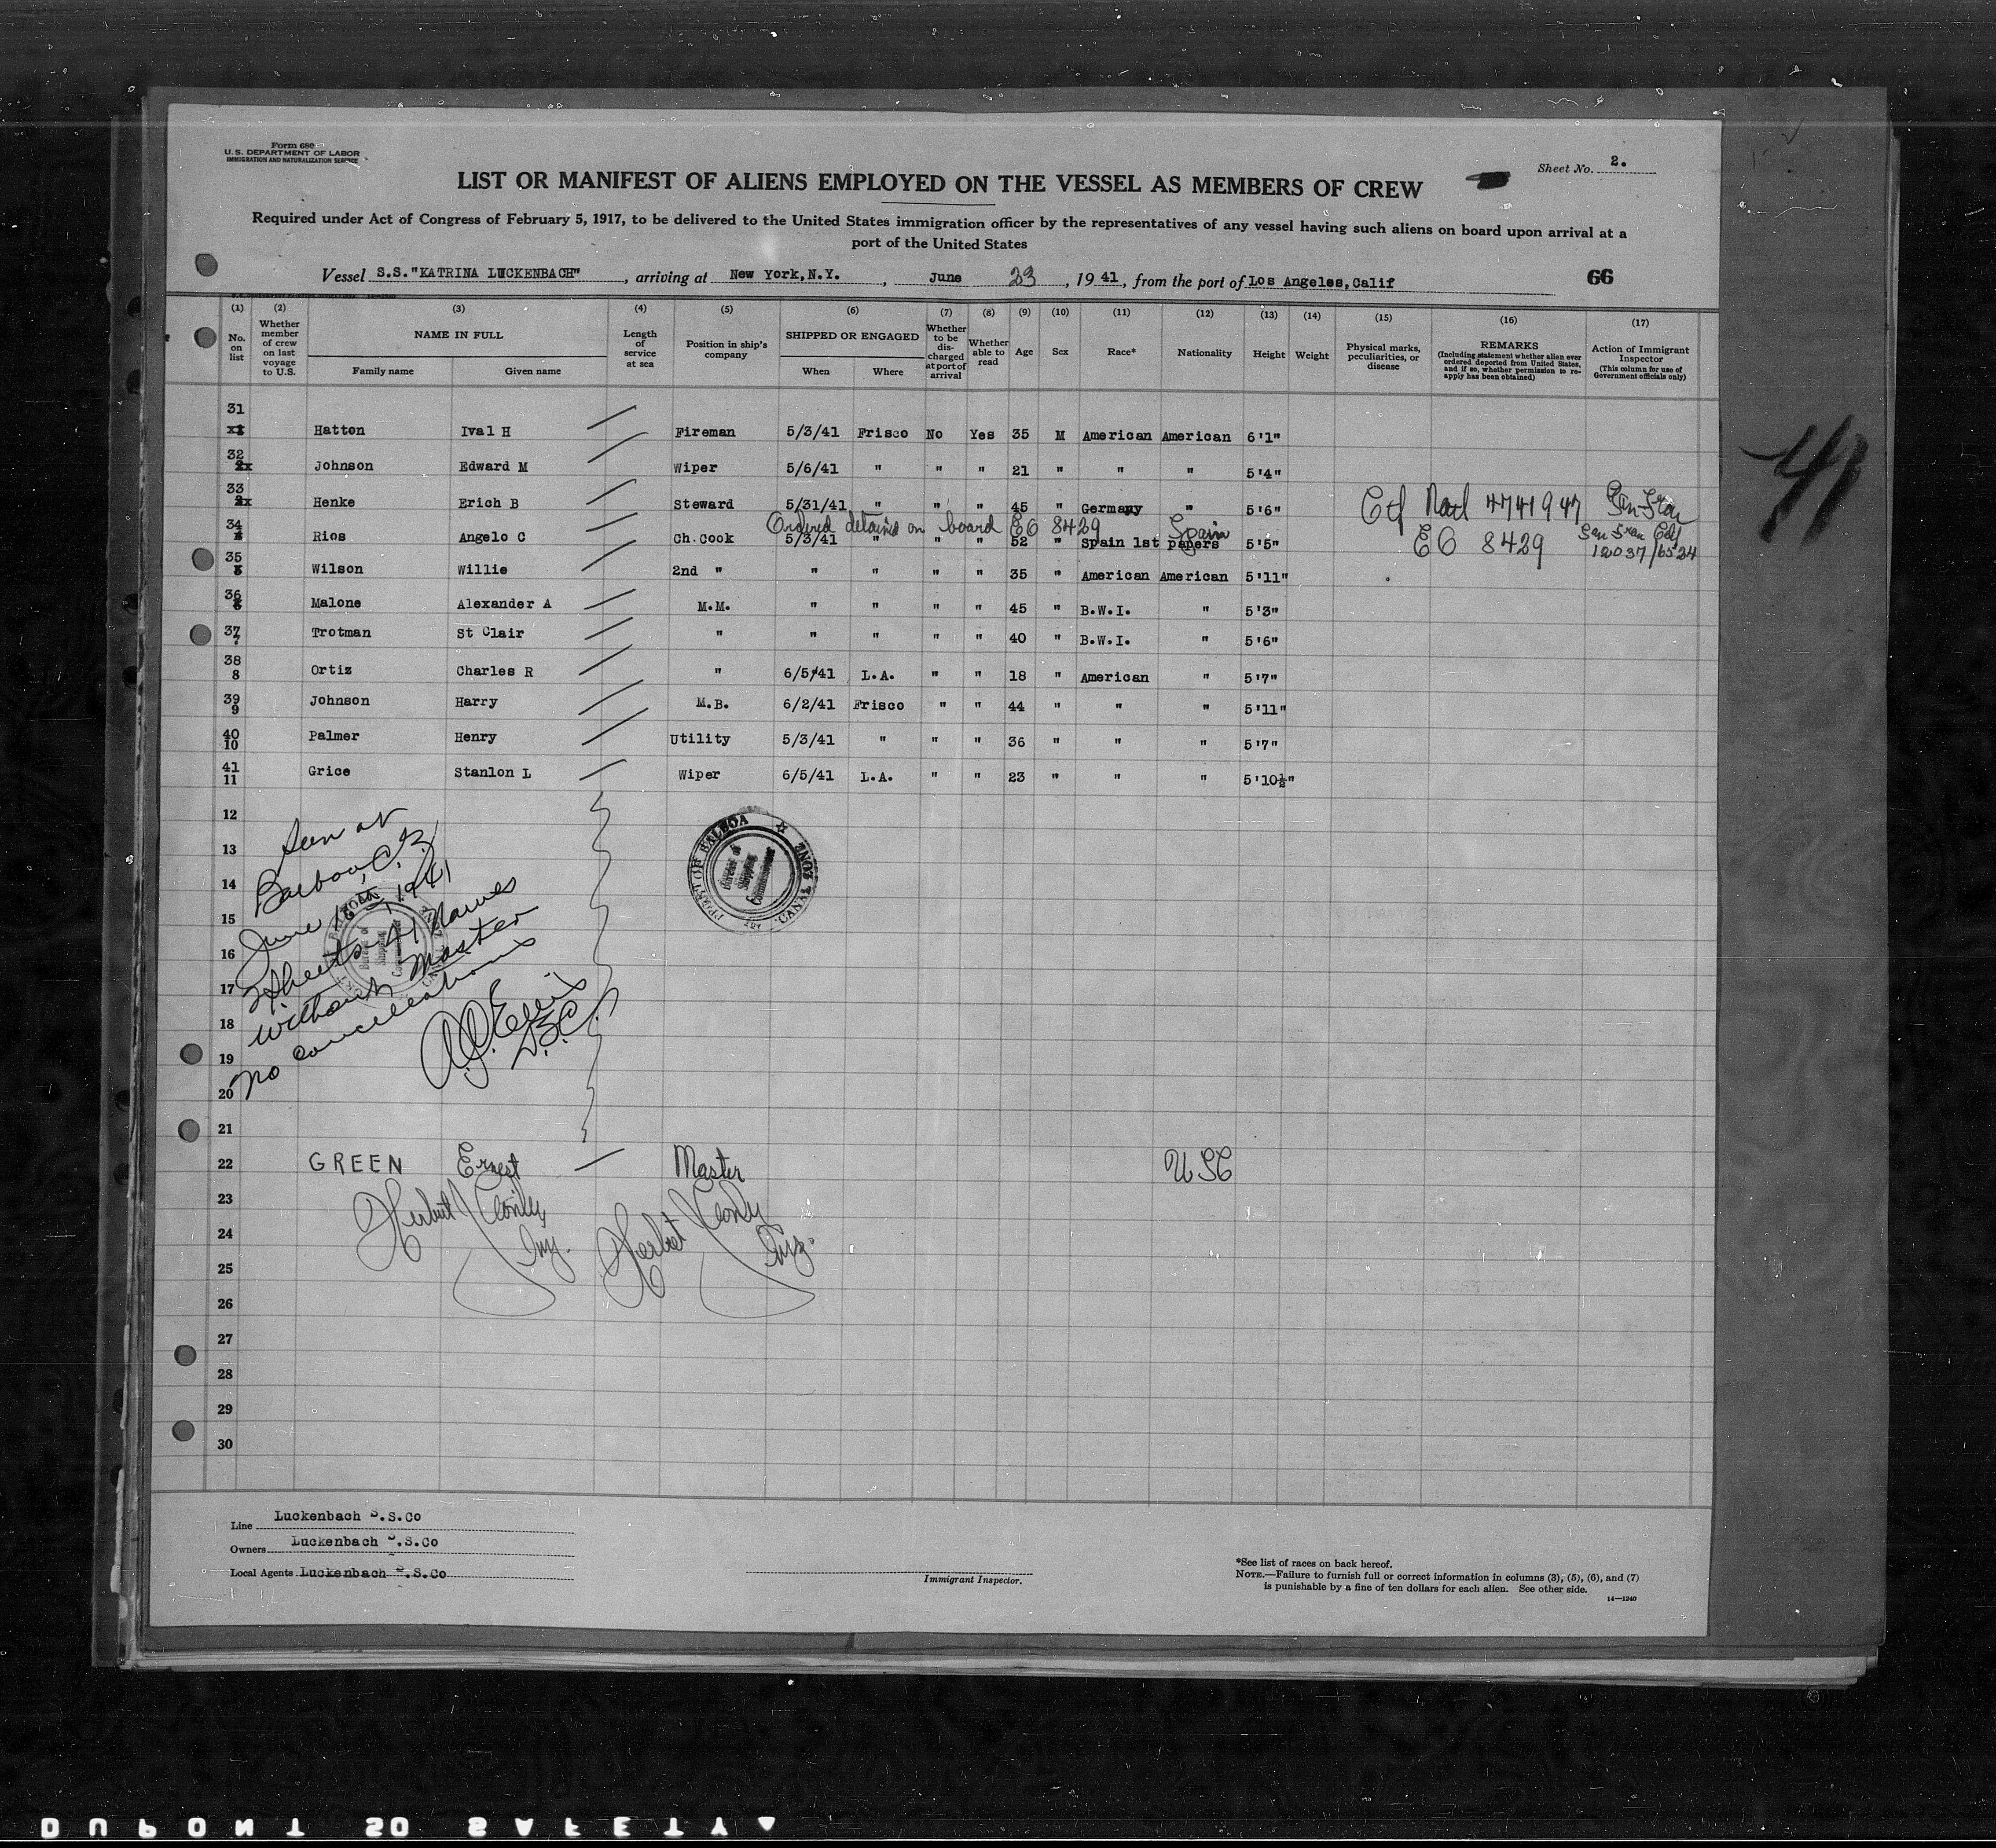 Form 680
U.S. DEPARTMENT OF LABOR
IMMIGRATION AND NATURALIZATION SERVICE
Sheet No. 2.
LIST OR MANIFEST OF ALIENS EMPLOYED ON THE VESSEL AS MEMBERS OF CREW
Required under Act of Congress of February 5, 1917, to be delivered to the United States immigration officer by the representatives of any vessel having such aliens on board upon arrival at a
port of the United States
Vessel S.S."KATRINA LUCKENBACH", arriving at New York,N.Y., June 23, 1941, from the port of Los Angeles,Calif 66
(1) No. on list
(2) Whether member of crew on last voyage to U.S.
(3) NAME IN FULL Family name Given name
(4) Length of service at sea
(5) Position in ship's company
(6) SHIPPED OR ENGAGED When Where
(7) Whether to be discharged at port of arrival
(8) Whether able to read
(9) Age
(10) Sex
(11) Race*
(12) Nationality
(13) Height
(14) Weight
(15) Physical marks, peculiarities, or disease
(16) REMARKS (Including statement whether alien ever ordered deported from United States, and if so, whether permission to reapply has been obtained)
(17) Action of Immigrant Inspector (This column for use of Government officials only)
31 Hatton Ival H Fireman 5/3/41 Frisco No Yes 35 M American American 6'1"
32 Johnson Edward M Wiper 5/6/41 " " " 21 " " " 5'4"
33 Henke Erich B Steward 5/31/41 " " " 45 " Germany " 5'6" Ctf Natl 4741947 San Fran
Ordered detained on board EO 8429 Spain
34 Rios Angelo C Ch.Cook 5/3/41 " " " 52 " Spain 1st papers 5'5" EO 8429 San Fran Ctf 12037/6524
35 Wilson Willie 2nd " " " " " 35 " American American 5'11"
36 Malone Alexander A M.M. " " " " 45 " B.W.I. " 5'3"
37 7 Trotman St Clair " " " " " 40 " B.W.I. " 5'6"
38 8 Ortiz Charles R " 6/5/41 L.A. " " 18 " American " 5'7"
39 9 Johnson Harry M.B. 6/2/41 Frisco " " 44 " " " 5'11"
40 10 Palmer Henry Utility 5/3/41 " " " 36 " " " 5'7"
41 11 Grice Stanlon L Wiper 6/5/41 L.A. " " 23 " " " 5'10½"
41
12
13
14
15
16
17
18
19
20
21
Seen at
Balboa, C.Z.
June 16th, 1941
2 Sheets 41 Names
without Master
no cancellations
PORT OF BALBOA CANAL ZONE
Bureau of
Shipping
Commissioner
22 GREEN Ernest Master USC
23
24
25
26
27
28
29
30
Line Luckenbach S.S.Co
Owners Luckenbach S.S.Co
Local Agents Luckenbach S.S.Co
Immigrant Inspector.
*See list of races on back hereof.
NOTE.—Failure to furnish full or correct information in columns (3), (5), (6), and (7)
is punishable by a fine of ten dollars for each alien. See other side.
14—1240
DUPONT SO SAFETY